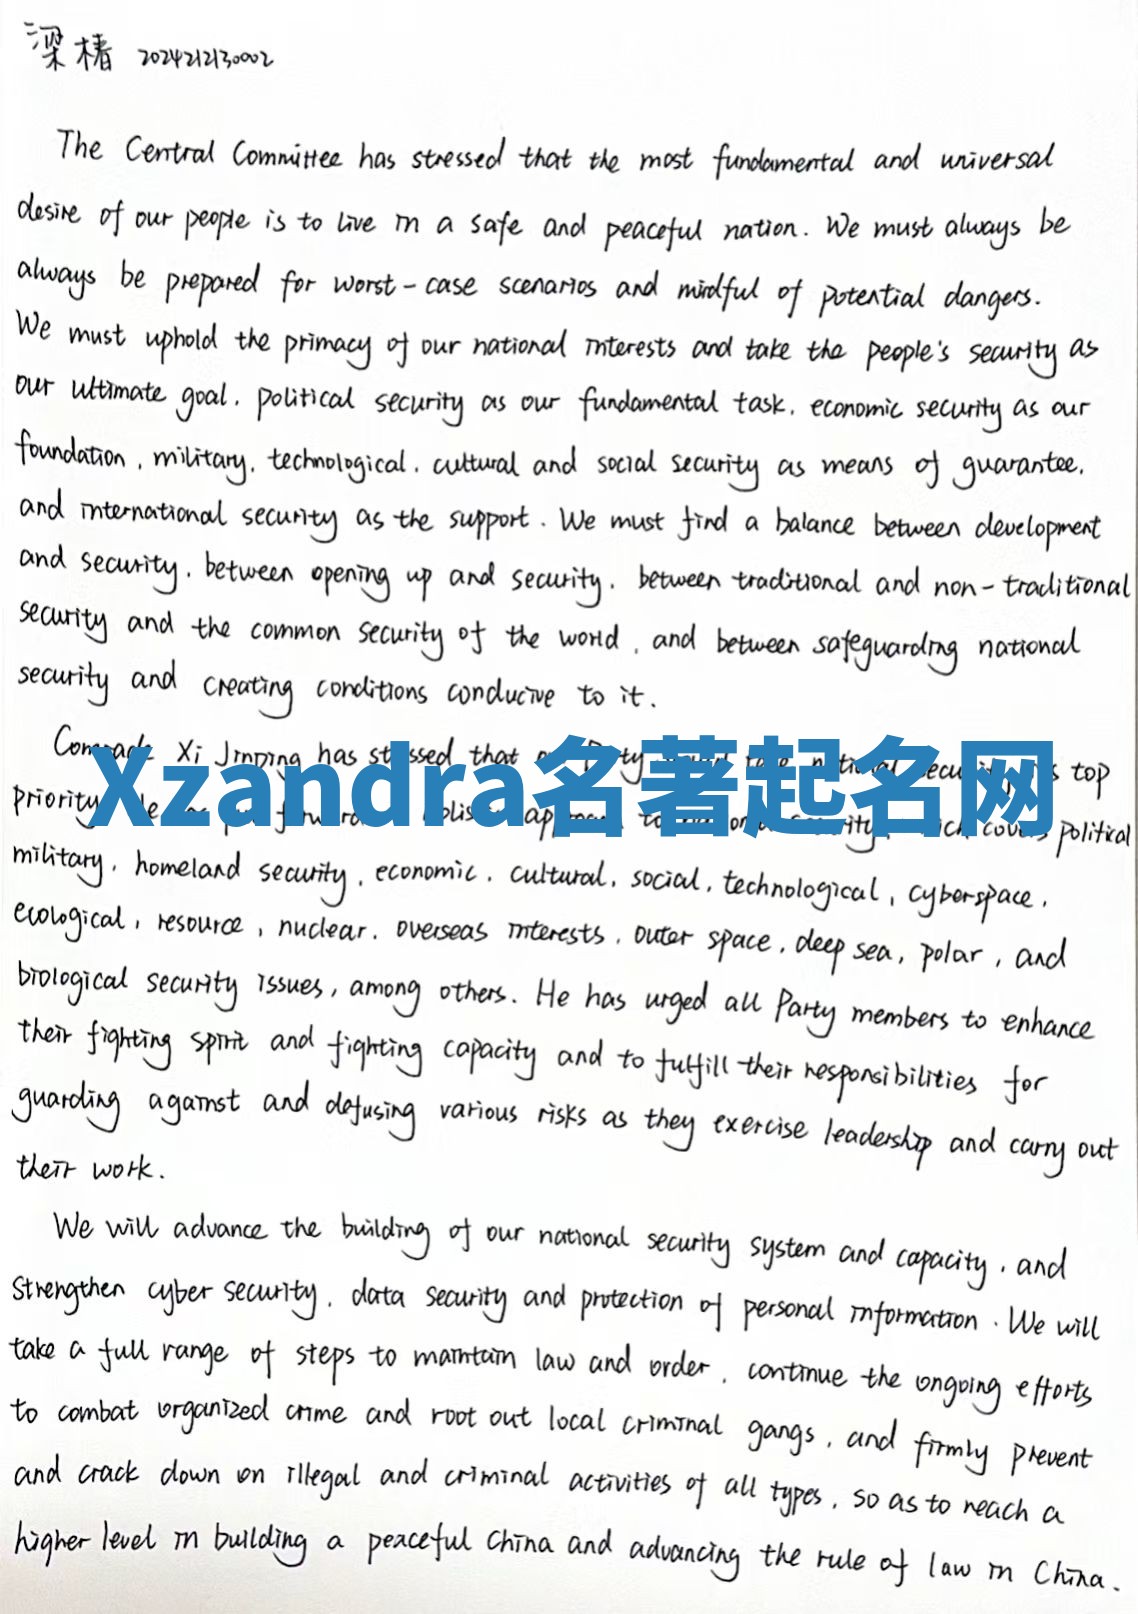 梁椿 2024212130002
The Central Committee has stressed that the most fundamental and universal
desire of our people is to live in a safe and peaceful nation. We must always be
always be prepared for worst-case scenarios and mindful of potential dangers.
We must uphold the primacy of our national interests and take the people's security as
our ultimate goal, political security as our fundamental task, economic security as our
foundation, military, technological, cultural and social security as means of guarantee,
and international security as the support. We must find a balance between development
and security, between opening up and security, between traditional and non-traditional
security and the common security of the world, and between safeguarding national
security and creating conditions conducive to it.
Comrade Xi Jinping has stressed that Party national top
Xzandra名著起名网
priority political
military, homeland security, economic, cultural, social, technological, cyberspace,
ecological, resource, nuclear, overseas interests, outer space, deep sea, polar, and
biological security issues, among others. He has urged all Party members to enhance
their fighting spirit and fighting capacity and to fulfill their responsibilities for
guarding against and defusing various risks as they exercise leadership and carry out
their work.
We will advance the building of our national security system and capacity, and
strengthen cyber security, data security and protection of personal information. We will
take a full range of steps to maintain law and order, continue the ongoing efforts
to combat organized crime and root out local criminal gangs, and firmly prevent
and crack down on illegal and criminal activities of all types, so as to reach a
higher level in building a peaceful China and advancing the rule of law in China.